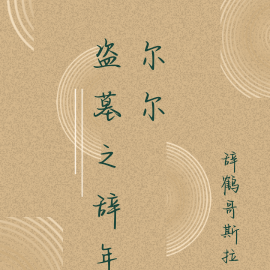 尔尔
盗墓之辞年
辞鹤哥斯拉